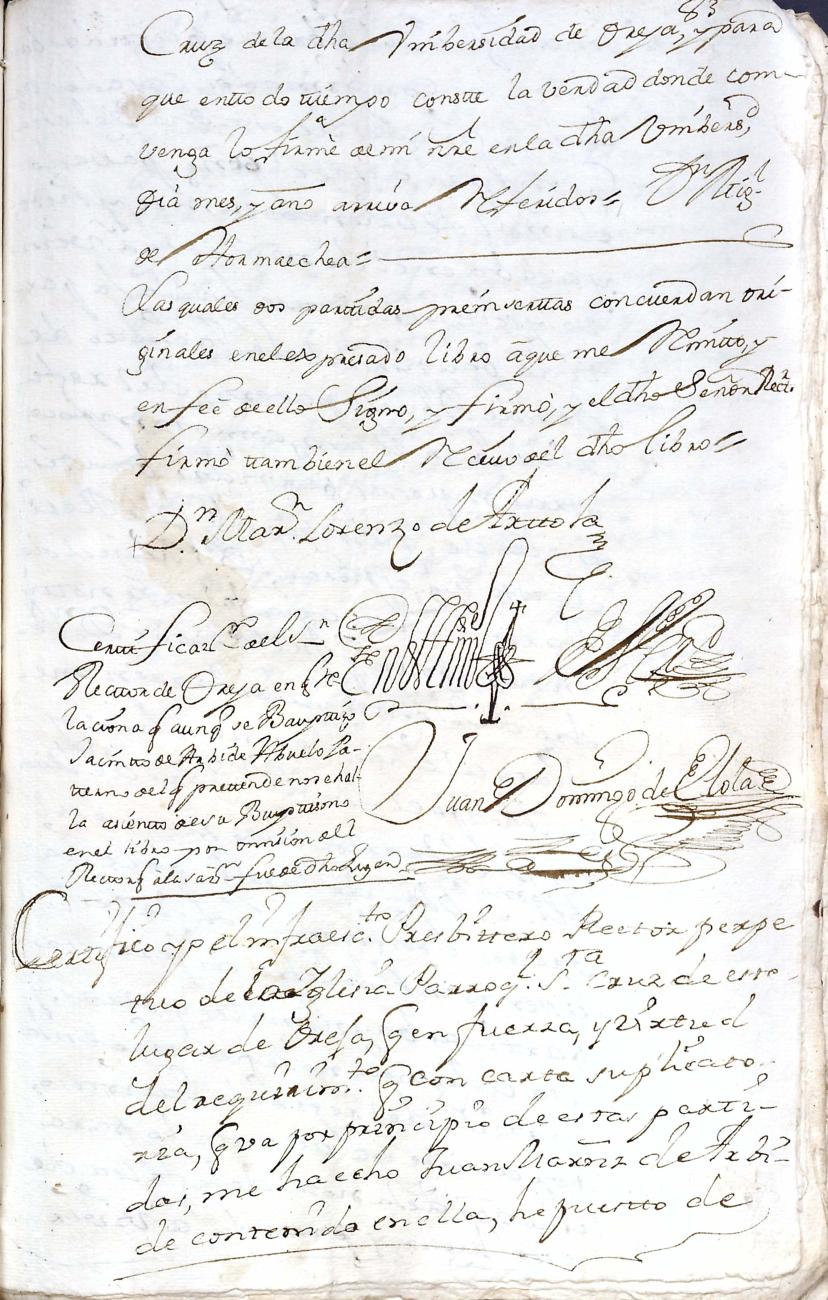 83
Cruz de la dha Vnibersidad de Oreja, y para
que en tto do tiempo constte la verdad donde com-
venga lo firmè de mi nre en la dha Vnibersd,
Dia mes, y año arriva Referidos = Dn Migl
de Hormaechea =
Las quales dos parttidas preinserttas concuerdan ori-
ginales en el expresado libro à que me Remitto, y
en feè de ello Signo, y firmò, y el dho Señor Rectr.
firmò ttambien el Recivo del dho libro =
Dn Marn Lorenzo de Arttola
En testtimo de Verdad
Juan Domingo de Elola
Certtificazn del Sn
Recttor de Oreja en Re
laciona q aunq se Bapttizo
Jacintto de Arbide Abuelo Pa-
tterno del q prettende no se hal-
la asientto de su Bapttismo
en el libro por omision del
Rector q à la sazn fue de dho Lugar
Certifico yo el infraescto. Presbittero Rector perpe
tuo de la Yglesia Parroql. Sta Cruz de este
lugar de Oreja, q en fuerza, y virtud
del requirimto. q con carta suplicato-
ria, q va por principio de estas parti-
das, me ha echo Juan Marnz de Arbi-
de contenido en ella, he puestto de